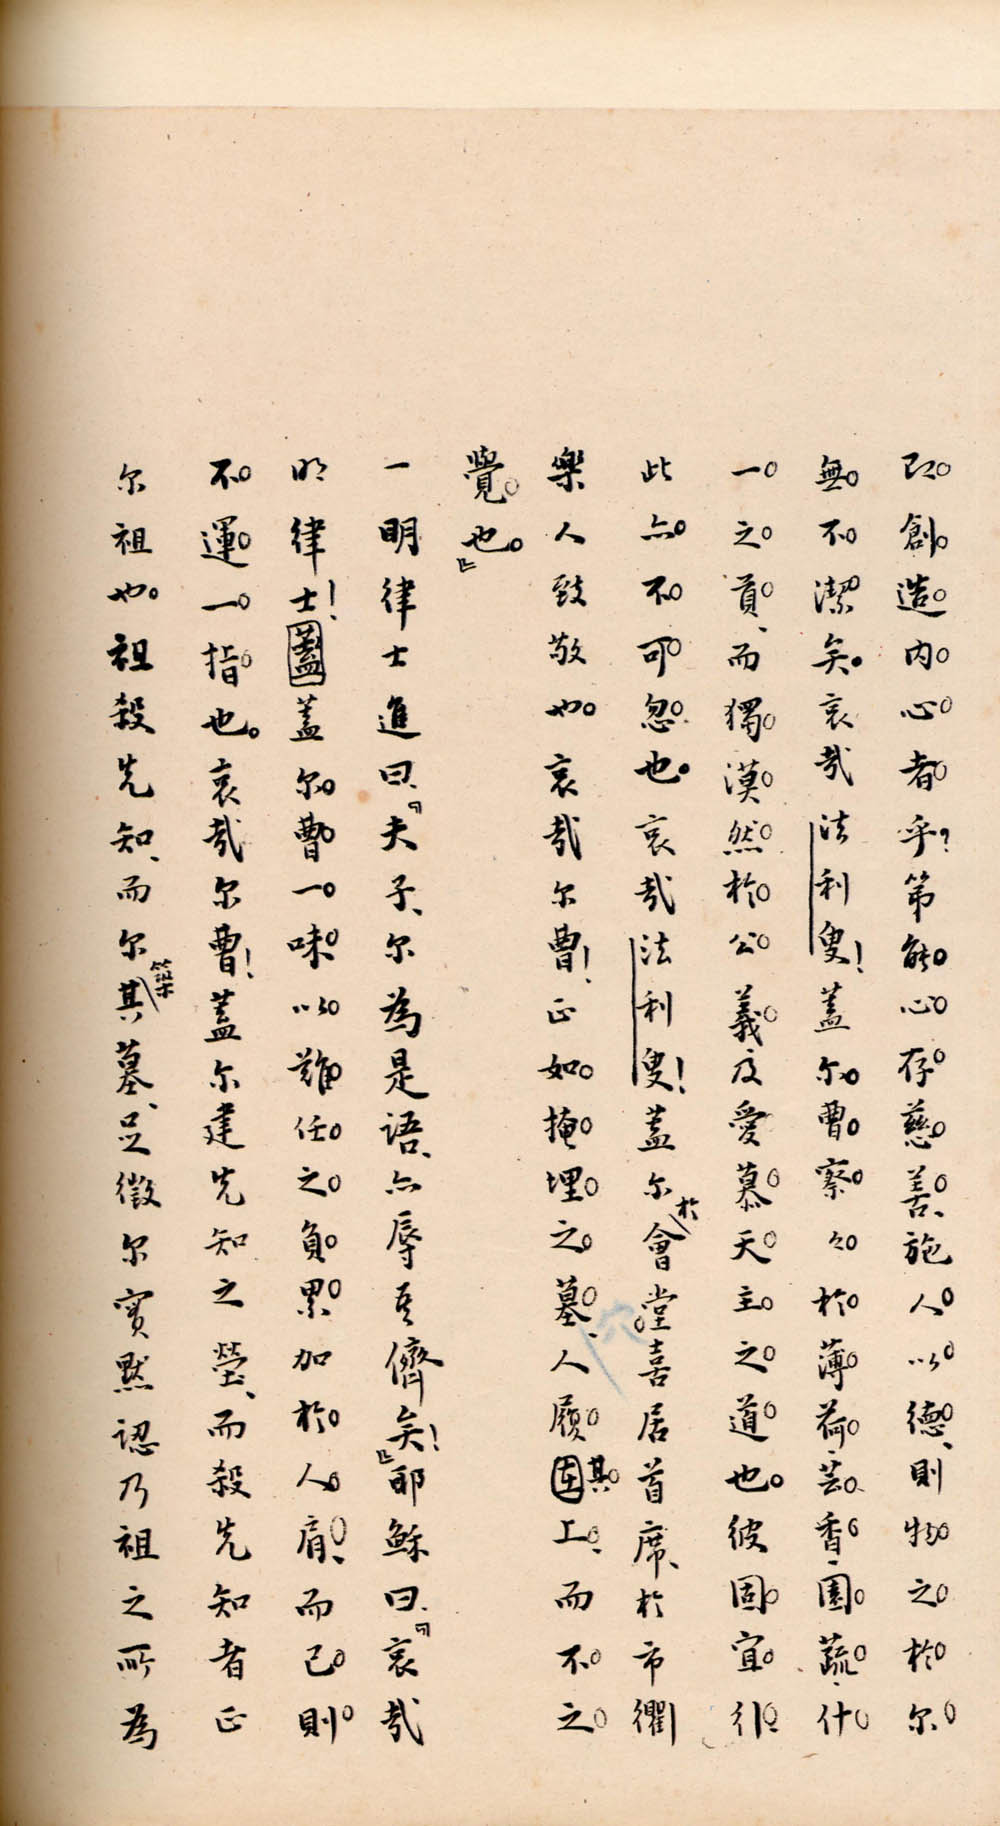 即創造內心者乎?第能心存慈善、施人以德、則物之於尔
無不潔矣。哀哉法利叟!蓋尔曹察々於薄荷、芸香、園蔬、什
一之貢、而獨漠然於公義及愛慕天主之道也。彼固宜行、
此亦不可忽也。哀哉法利叟!蓋尔於會堂喜居首席、於市衢
樂人致敬也。哀哉尔曹!正如掩埋之墓、人履其上、而不之
覺也。』
一明律士進曰、『夫子、尔為是語、亦辱吾儕矣!』耶穌曰、『哀哉
明律士!蓋尔曹一味以難任之負累加於人肩、而己則
不運一指也。哀哉尔曹!蓋尔建先知之塋、而殺先知者正
尔祖也。祖殺先知、而尔築其墓、足徵尔實默認乃祖之所為